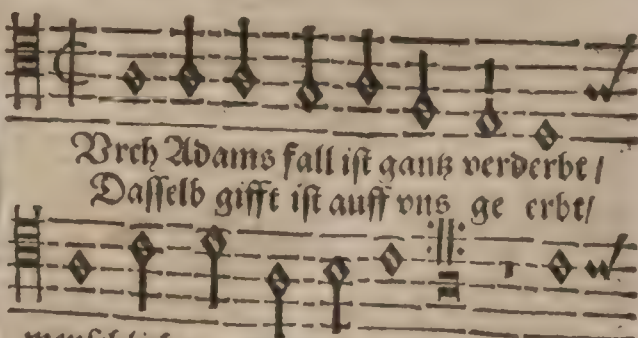 Vrch Adams fall ist gantz verderbt/
Dasselb gifft ist auff vns ge erbt/